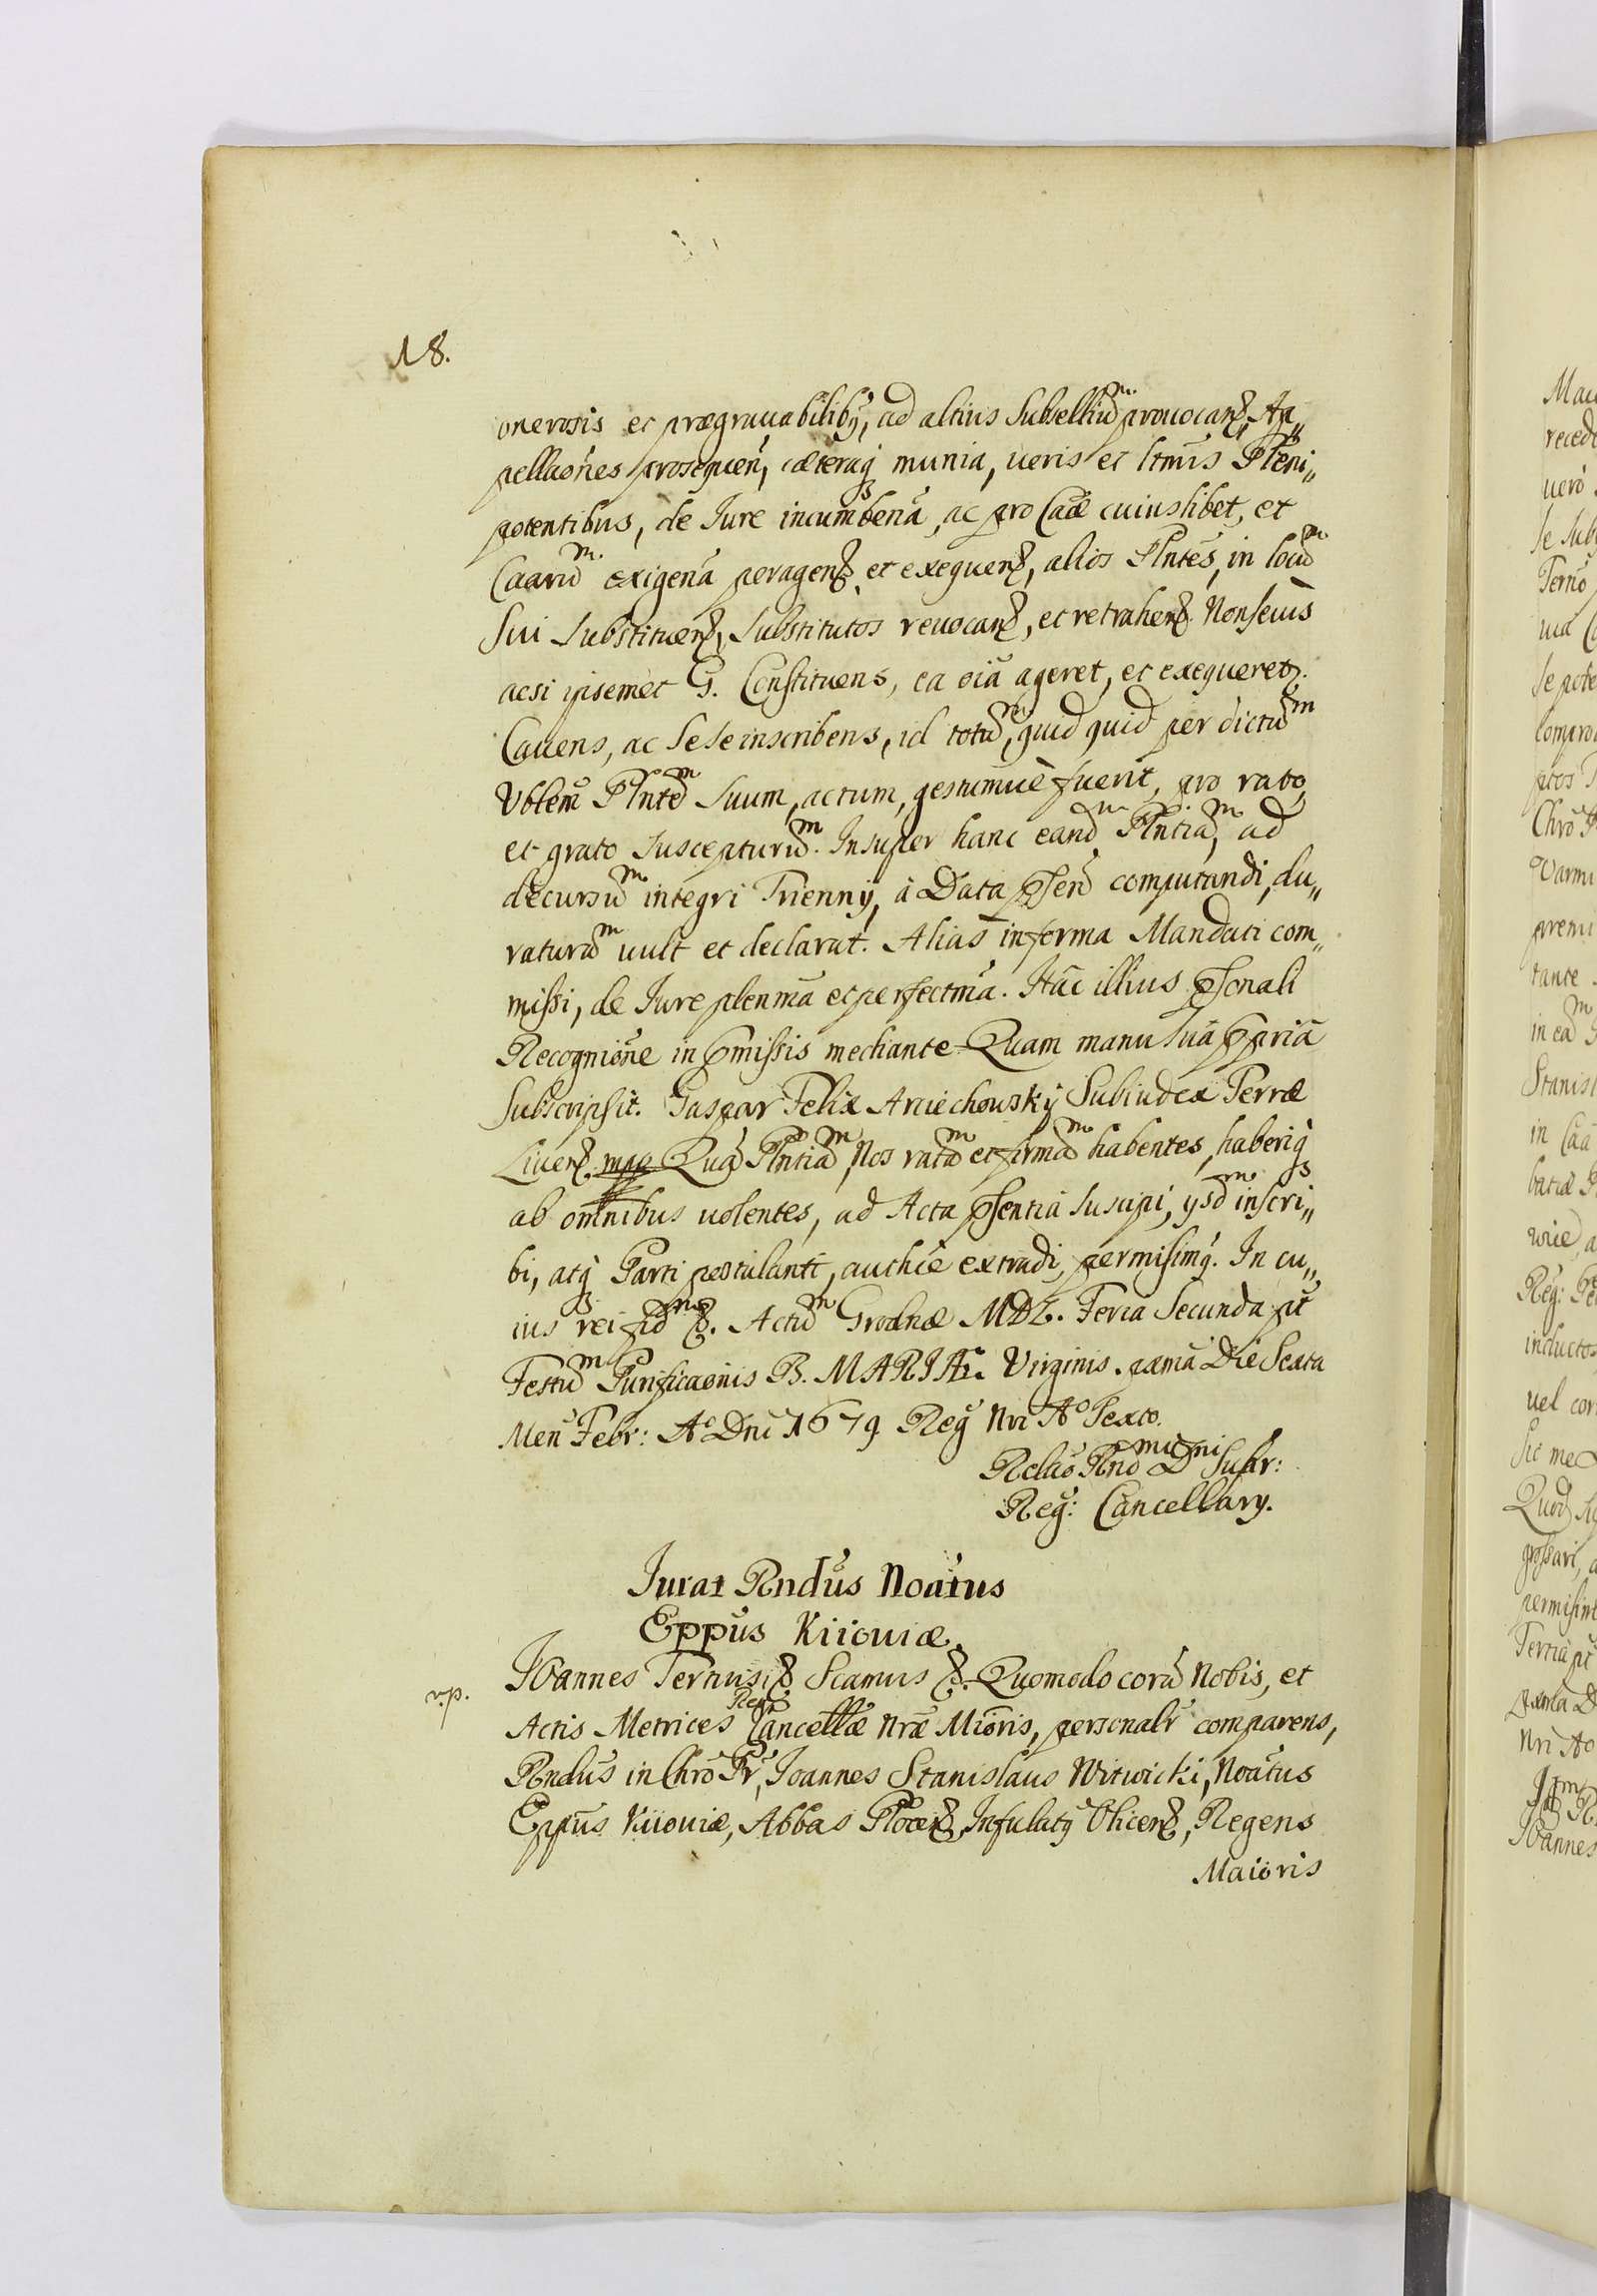 18.
onerosis et prægrauabilibq, ad altius Subselliũm prouocan&, Ap„
pellaõnes prosequen, cæteraq munia, ueris et ltmis Pleni„
potentibus, de Iure incumbena, ac pro Caæ cuiuslibet, et
Caarum exigena peragen& et exequen&, alios Plntes, in locum
Sui Substituen&, Substitutos reuocan&, et retrahen&. Non secus
acsi ipsemet G. Constituens, ea oia ageret, et exequeret.
Cauens, ac Sese inscribens, id totum, quid quid per dictum
Vblem Plntem Suum, actum, gestumue fuerit, pro rato,
et grato Suscepturum. Insuper hanc eandm Plntiam, ad
decursum integri Trienny, à Data psen computandi, du„
raturam uult et declarat. Alias in forma Mandati com„
missi, de Iure plenma et perfectma. Hac illius psonali
Recognione in pmissis mediante. Quam manu Sua ppria
Subscripsit. Gaspar Felix Arciechowsky Subiudex Terræ
Liuen& mpa Quã Plntiam, Nos ratam et firmam habentes, haberiq
ab omnibus uolentes, ad Acta psentia Suscipi, ysdm inscri„
bi, atq Parti postulanti, authce extradi, permisimq. In cu„
ius rei fidm &. Actum Grodnæ MDL. Feria Secunda pt
Festum Purificaonis B. MARIÆ Virginis. pxma Die Sexta
Men Febr: Ao Dni 1679 Reg Nri Ao Sexto.
Relao Rnd Dni Supr:
Reg: Cancellary.
Iurat Rndus Noatus
Eppus Kiiouiæ.
v.p.
Ioannes Tertius & Scamus &. Quomodo corã Nobis, et
Actis Metrices Regn Cancellæ Nræ Mioris, personalr comparens,
Rndus in Chro Pr, Ioannes Stanislaus Witwicki, Noatus
Eppus Kiiouiæ, Abbas Plocen&, Infulatq Olicen&, Regens
Maioris